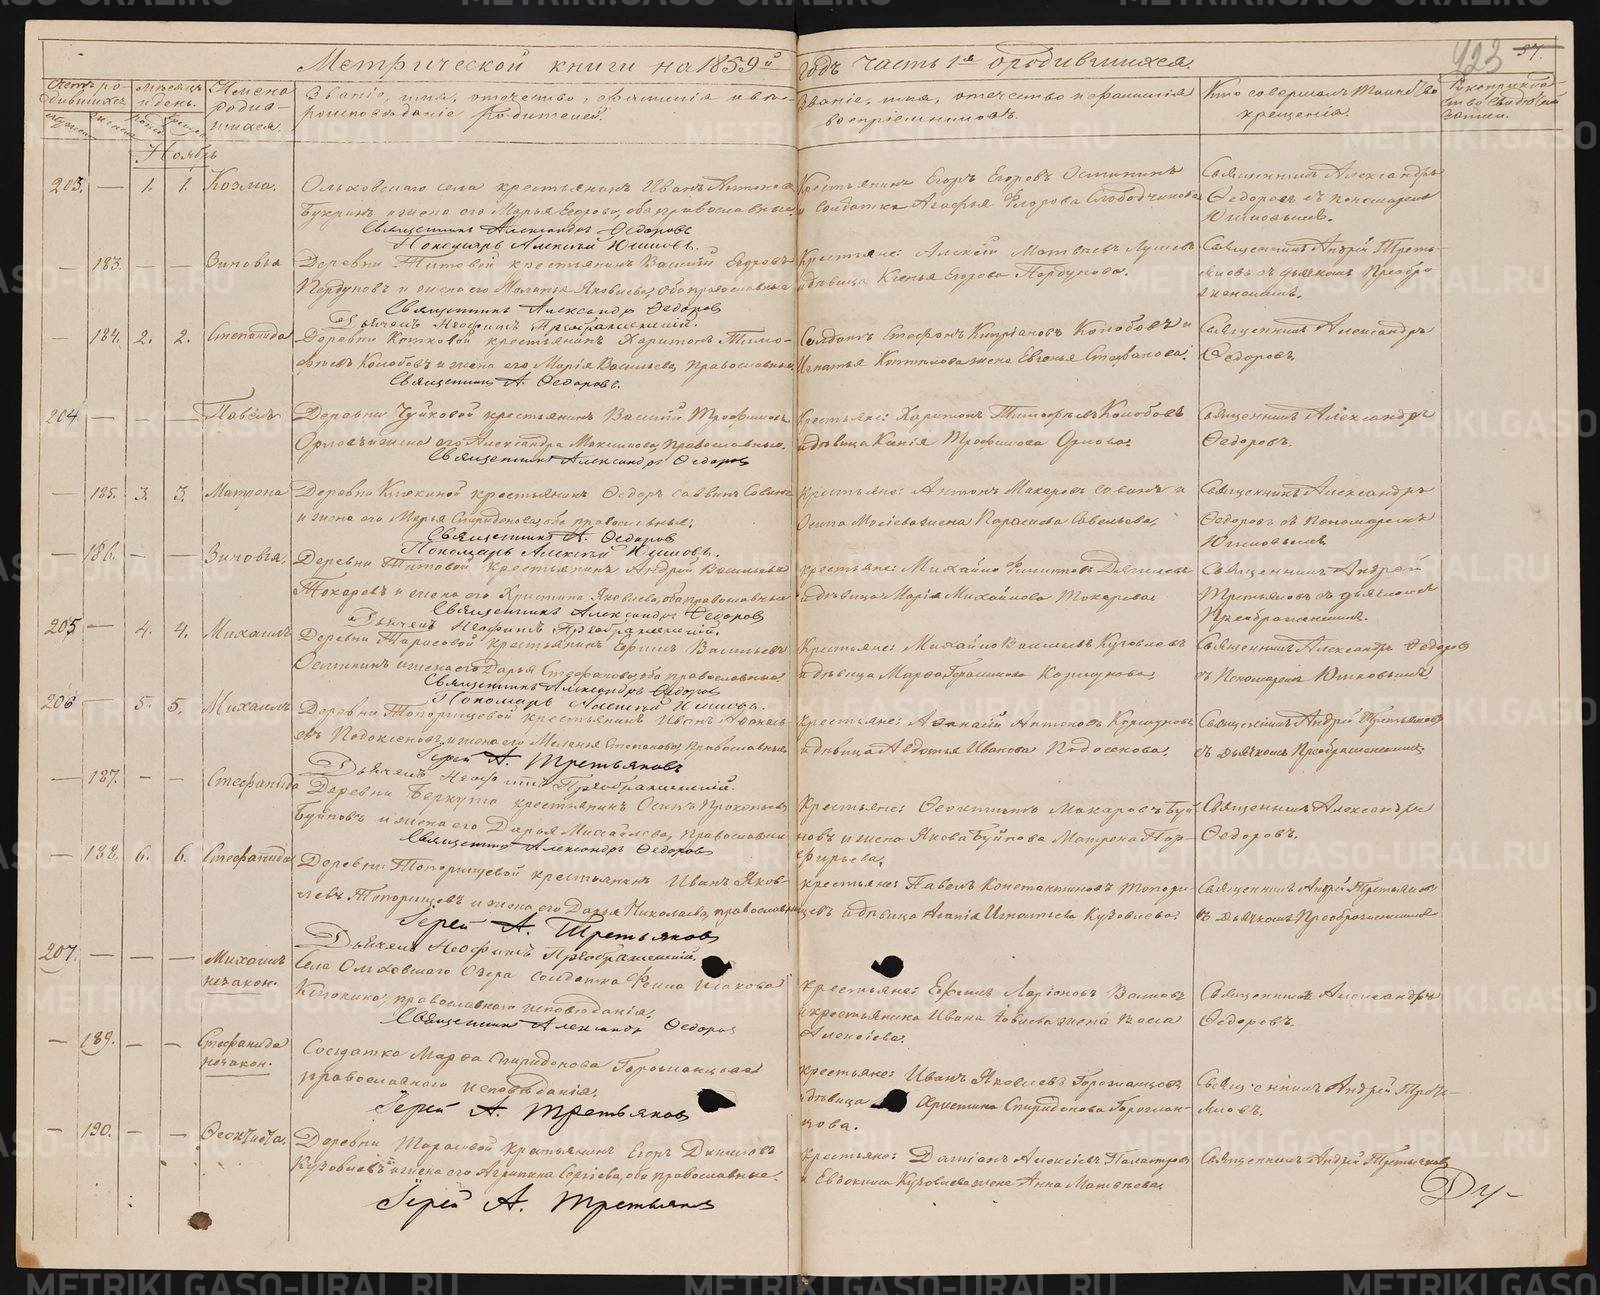 423 37.
Метрической книги на 1859й годъ часть 1я о родившихся.
Счетъ родившихся
Мѣсяцъ и день.
Имена родившихся.
Званіе, имя, отчество, фамилія и вѣроисповѣданіе родителей.
Званіе, имя, отчество и фамилія воспріемниковъ.
Кто совершалъ таинство крещенія.
Рукоприкладство свидѣтелей записи.
Ноябрь
203. — 1. 1. Козма.
Ольховскаго села крестьянинъ Иванъ Антоновъ
Букринъ и жена его Марья Егорова, оба православные.
Священникъ Александръ Федоровъ
Пономарь Алексѣй Юшковъ.
Крестьянинъ Егоръ Егоровъ Осининъ
и солдатка Агафья Флорова Слободчикова
Священникъ Александръ
Федоровъ съ пономаремъ
Юшковымъ.
— 183. — — Зиновья
Деревни Титовой крестьянинъ Василій Егоровъ
и жена его Маланья Яковлева, оба православные
Священникъ Александръ Федоровъ
Дьячекъ Неофитъ Преображенскій.
Крестьяне: Алексій Матвѣевъ
и дѣвица Ксенья Егорова
Священникъ Андрей Третьяковъ съ дьячкомъ Преображенскимъ.
— 184. 2. 2. Степанида
Деревни крестьянинъ Харитонъ Тимофѣевъ Колобовъ и жена его Марія Васильева, православные.
Священникъ А. Федоровъ.
Солдатъ Стефанъ Кипріановъ Колобовъ и
Игнатья жена Евгенья Стефанова.
Священникъ Александръ
Федоровъ
204 — — — Павелъ
Деревни Чуйковой крестьянинъ Василій Трофимовъ
Орловъ и жена его Александра Максимова, православные.
Священникъ Александръ Федоровъ
Крестьяне: Харитонъ Тимофѣевъ Колобовъ
и дѣвица Ксенія Трофимова Орлова.
Священникъ Александръ
Федоровъ.
— 185. 3. 3. Матрена
Деревни крестьянинъ Федоръ Саввинъ
и жена его Марья Спиридонова, оба православные.
Священникъ А. Федоровъ
Пономарь Алексѣй Юшковъ.
Крестьяне: Антонъ Макаровъ и
Осипа жена Параскева Савельева.
Священникъ Александръ
Федоровъ съ Пономаремъ
Юшковымъ
— 186. — — Зиновья.
Деревни Титовой крестьянинъ Андрей Васильевъ
Токаревъ и жена его Христина Яковлева, оба православные
Священникъ Александръ Федоровъ
Дьячекъ Неофитъ Преображенскій.
крестьяне: Михайло Филиповъ
и дѣвица Марія Михайлова Токарева.
Священникъ Андрей
Третьяковъ съ дьячкомъ
Преображенскимъ.
205 — 4. 4. Михаилъ
Деревни Тарасовой крестьянинъ Ефимъ Васильевъ
Осининъ и жена его Дарья Стефанова, оба православные
Священникъ Александръ Федоровъ
Пономарь Алексѣй Юшковъ.
Крестьяне: Михайло Васильевъ Кузовлевъ
и дѣвица Марфа Герасимова Коршунова,
Священникъ Александръ Федоровъ
съ Пономаремъ Юшковымъ
206 — 5. 5. Михаилъ
Деревни Топорищевой крестьянинъ Иванъ Афанасьевъ Подоксеновъ и жена его Меланья Степанова, православные
Іерей А. Третьяковъ
Дьячекъ Неофитъ Преображенскій.
крестьяне: Афанасій Антоновъ Коршуновъ
и дѣвица Авдотья Иванова
Священникъ Андрей Третьяковъ
съ дьячкомъ Преображенскимъ
— 187. — — Стефанида
Деревни Беркута крестьянинъ Осипъ Прокопьевъ
Буйновъ и жена его Дарья Михайлова, православные
Священникъ Александръ Федоровъ
Крестьяне: Феоктистъ Макаровъ Буйновъ и жена Якова Буйнова Матрена Порфирьева.
Священникъ Александръ
Федоровъ.
— 188. 6. 6. Стефанида
Деревни Топорищевой крестьянинъ Иванъ Яковлевъ Топорищевъ и жена его Дарья Николаева, православные
Іерей А. Третьяковъ
Дьячекъ Неофитъ Преображенскій.
крестьяне: Павелъ Константиновъ Топорищевъ и дѣвица Агапія Игнатьева Кузовлева.
Священникъ Андрей Третьяковъ
съ дьячкомъ Преображенскимъ
207. — — — Михаилъ
незакон.
Села Ольховскаго Озера солдатка Фекла Исакова
православнаго исповѣданія.
Священникъ Александръ Федоровъ
крестьяне: Ефимъ Ларіоновъ Волковъ
и крестьянина Ивана жена Васса
Алексіева.
Священникъ Александръ
Федоровъ.
— 189. — — Стефанида
незакон.
Солдатка Марфа Спиридонова
православнаго исповѣданія.
Іерей А. Третьяковъ
крестьяне: Иванъ Яковлевъ
и дѣвица Христина Спиридонова
Священникъ Андрей Третьяковъ.
— 190. — — Феоктиста.
Деревни Тарасовой крестьянинъ Егоръ Даниловъ
Кузовлевъ и жена его Агрипина Сергіева, оба православные.
Іерей А. Третьяковъ
крестьяне: Даміанъ Алексіевъ
и Евдокима Кузовлева жена Анна Матвѣева.
Священникъ Андрей Третьяковъ
Ду-
METRIKI.GASO-URAL.RU